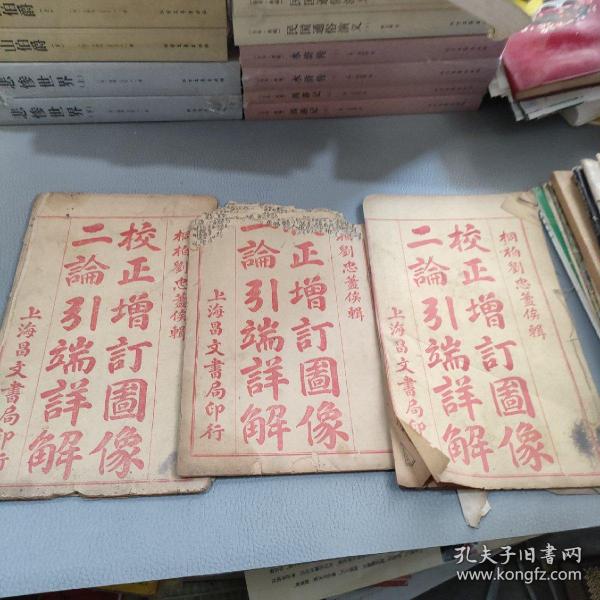 伯爵
山伯爵
悲惨世界
悲惨世界
民国通俗演义
民国通俗演义
水浒传
水浒传
西游记
西游记
桐柏劉忠藎俟輯
校正增訂圖像
二論引端詳解
上海昌文書局印行
桐柏劉忠藎俟輯
正增訂圖像
二論引端詳解
上海昌文書局印行
桐柏劉忠藎俟輯
校正增訂圖像
二論引端詳解
上海昌文書局印行
孔夫子旧书网
www.kongfz.com